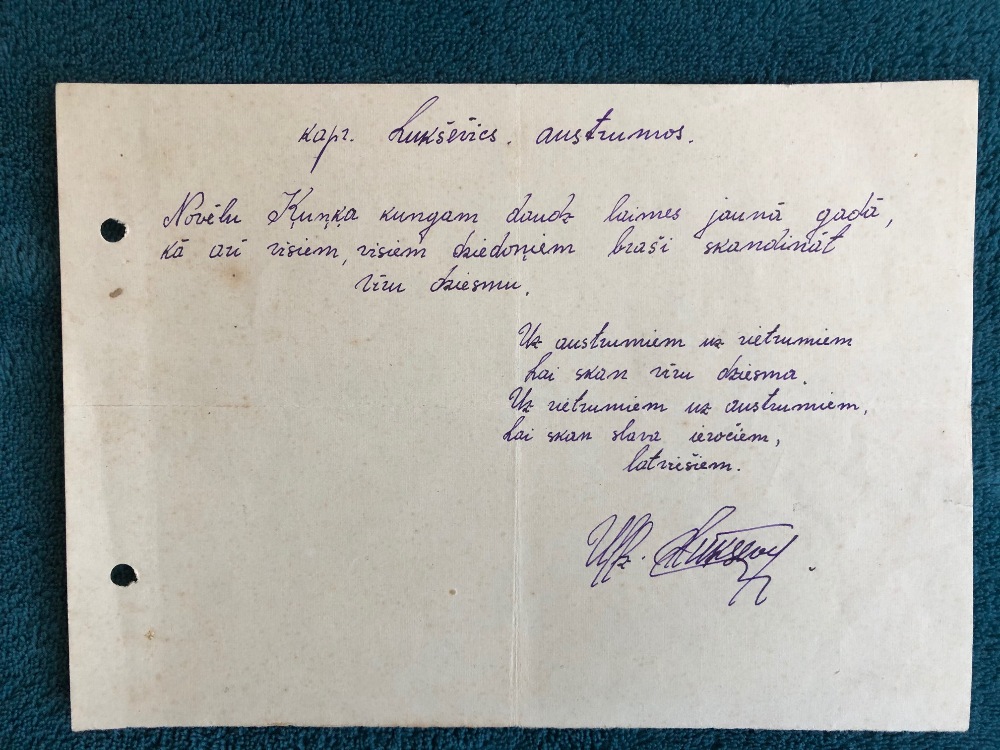 kapr. Lukševics. austrumos.
Novēlu Ķuņķa kungam daudz laimes jaunā gadā,
kā arī visiem, visiem dziedoņiem braši skandināt
vīru dziesmu.
Uz austrumiem uz rietrumiem
Lai skan vīru dziesma.
Uz rietrumiem uz austrumiem,
Lai skan slava ieročiem,
latviešiem.